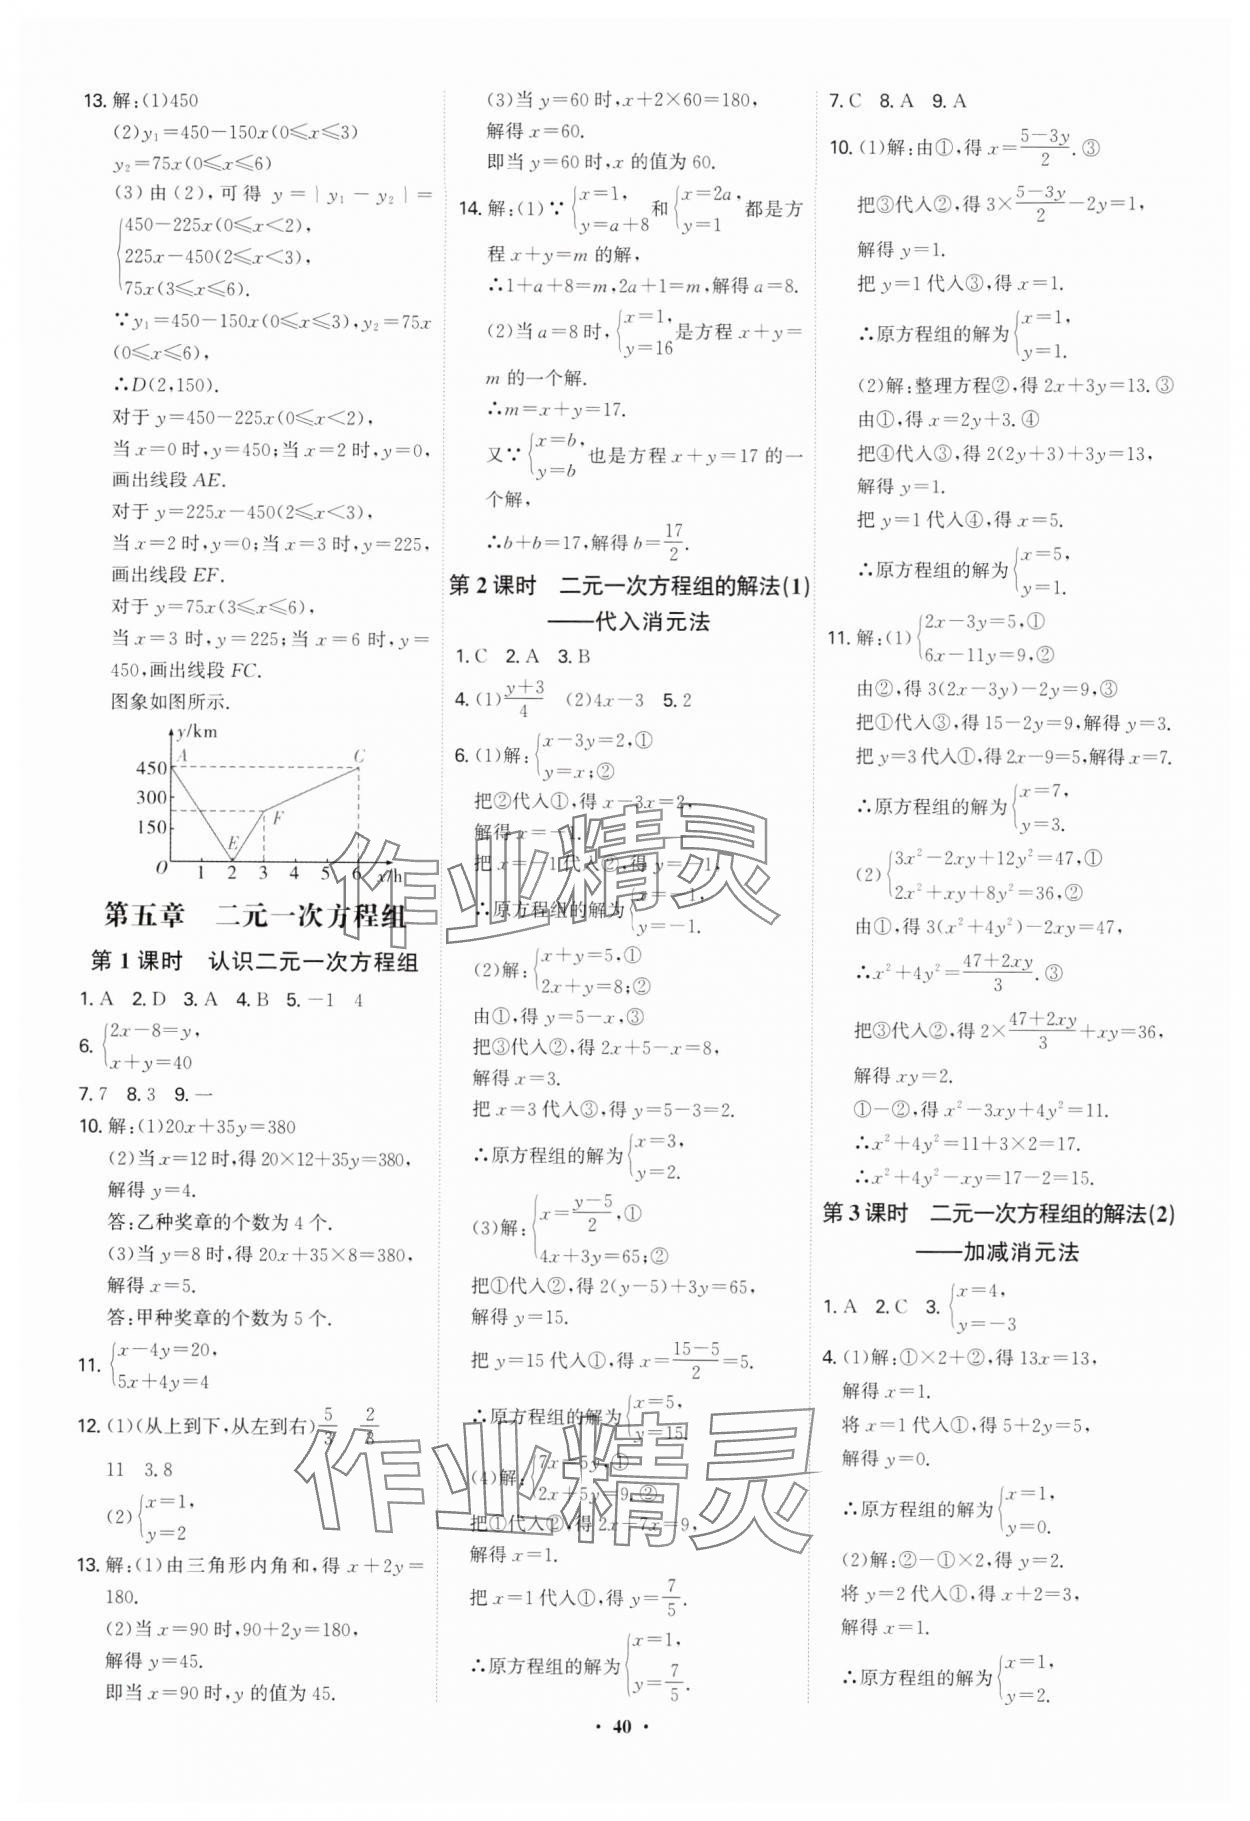 13. 解:(1)450
(2)y₁=450-150x(0≤x≤3)
y₂=75x(0≤x≤6)
(3)由(2),可得 y=|y₁-y₂|=
{450-225x(0≤x<2),
225x-450(2≤x<3),
75x(3≤x≤6).
∵y₁=450-150x(0≤x≤3),y₂=75x
(0≤x≤6),
∴D(2,150).
对于 y=450-225x(0≤x<2),
当 x=0 时,y=450;当 x=2 时,y=0,
画出线段 AE.
对于 y=225x-450(2≤x<3),
当 x=2 时,y=0;当 x=3 时,y=225,
画出线段 EF.
对于 y=75x(3≤x≤6),
当 x=3 时,y=225;当 x=6 时,y=
450,画出线段 FC.
图象如图所示.
y/km
A C
450
300
F
150
E
O 1 2 3 4 5 6 x/h
第五章 二元一次方程组
第 1 课时 认识二元一次方程组
1. A 2. D 3. A 4. B 5. -1 4
6. {2x-8=y,
x+y=40
7. 7 8. 3 9. 一
10. 解:(1)20x+35y=380
(2)当 x=12 时,得 20×12+35y=380,
解得 y=4.
答:乙种奖章的个数为 4 个.
(3)当 y=8 时,得 20x+35×8=380,
解得 x=5.
答:甲种奖章的个数为 5 个.
11. {x-4y=20,
5x+4y=4
12. (1)(从上到下,从左到右)5/3 2/3
11 3.8
(2){x=1,
y=2
13. 解:(1)由三角形内角和,得 x+2y=
180.
(2)当 x=90 时,90+2y=180,
解得 y=45.
即当 x=90 时,y 的值为 45.
(3)当 y=60 时,x+2×60=180,
解得 x=60.
即当 y=60 时,x 的值为 60.
14. 解:(1)∵{x=1, y=a+8 和{x=2a, y=1 都是方
程 x+y=m 的解,
∴1+a+8=m,2a+1=m,解得 a=8.
(2)当 a=8 时,{x=1, y=16 是方程 x+y=
m 的一个解.
∴m=x+y=17.
又∵{x=b, y=b 也是方程 x+y=17 的一
个解,
∴b+b=17,解得 b=17/2.
第 2 课时 二元一次方程组的解法(1)
——代入消元法
1. C 2. A 3. B
4. (1)(y+3)/4 (2)4x-3 5. 2
6. (1)解:{x-3y=2,①
y=x;②
把②代入①,得 x-3x=2,
解得 x=-1.
把 x=-1 代入②,得 y=-1,
∴原方程组的解为{x=-1,
y=-1.
(2)解:{x+y=5,①
2x+y=8;②
由①,得 y=5-x,③
把③代入②,得 2x+5-x=8,
解得 x=3.
把 x=3 代入③,得 y=5-3=2.
∴原方程组的解为{x=3,
y=2.
(3)解:{x=(y-5)/2,①
4x+3y=65;②
把①代入②,得 2(y-5)+3y=65,
解得 y=15.
把 y=15 代入①,得 x=(15-5)/2=5.
∴原方程组的解为{x=5,
y=15.
(4)解:{7x=5y,①
2x+5y=9,②
把①代入②,得 2x+7x=9,
解得 x=1.
把 x=1 代入①,得 y=7/5.
∴原方程组的解为{x=1,
y=7/5.
7. C 8. A 9. A
10. (1)解:由①,得 x=(5-3y)/2.③
把③代入②,得 3×(5-3y)/2-2y=1,
解得 y=1.
把 y=1 代入③,得 x=1.
∴原方程组的解为{x=1,
y=1.
(2)解:整理方程②,得 2x+3y=13.③
由①,得 x=2y+3.④
把④代入③,得 2(2y+3)+3y=13,
解得 y=1.
把 y=1 代入④,得 x=5.
∴原方程组的解为{x=5,
y=1.
11. 解:(1){2x-3y=5,①
6x-11y=9,②
由②,得 3(2x-3y)-2y=9,③
把①代入③,得 15-2y=9,解得 y=3.
把 y=3 代入①,得 2x-9=5,解得 x=7.
∴原方程组的解为{x=7,
y=3.
(2){3x²-2xy+12y²=47,①
2x²+xy+8y²=36,②
由①,得 3(x²+4y²)-2xy=47,
∴x²+4y²=(47+2xy)/3.③
把③代入②,得 2×(47+2xy)/3+xy=36,
解得 xy=2.
①-②,得 x²-3xy+4y²=11.
∴x²+4y²=11+3×2=17.
∴x²+4y²-xy=17-2=15.
第 3 课时 二元一次方程组的解法(2)
——加减消元法
1. A 2. C 3. {x=4,
y=-3
4. (1)解:①×2+②,得 13x=13,
解得 x=1.
将 x=1 代入①,得 5+2y=5,
解得 y=0.
∴原方程组的解为{x=1,
y=0.
(2)解:②-①×2,得 y=2.
将 y=2 代入①,得 x+2=3,
解得 x=1.
∴原方程组的解为{x=1,
y=2.
作业精灵
作业精灵
· 40 ·